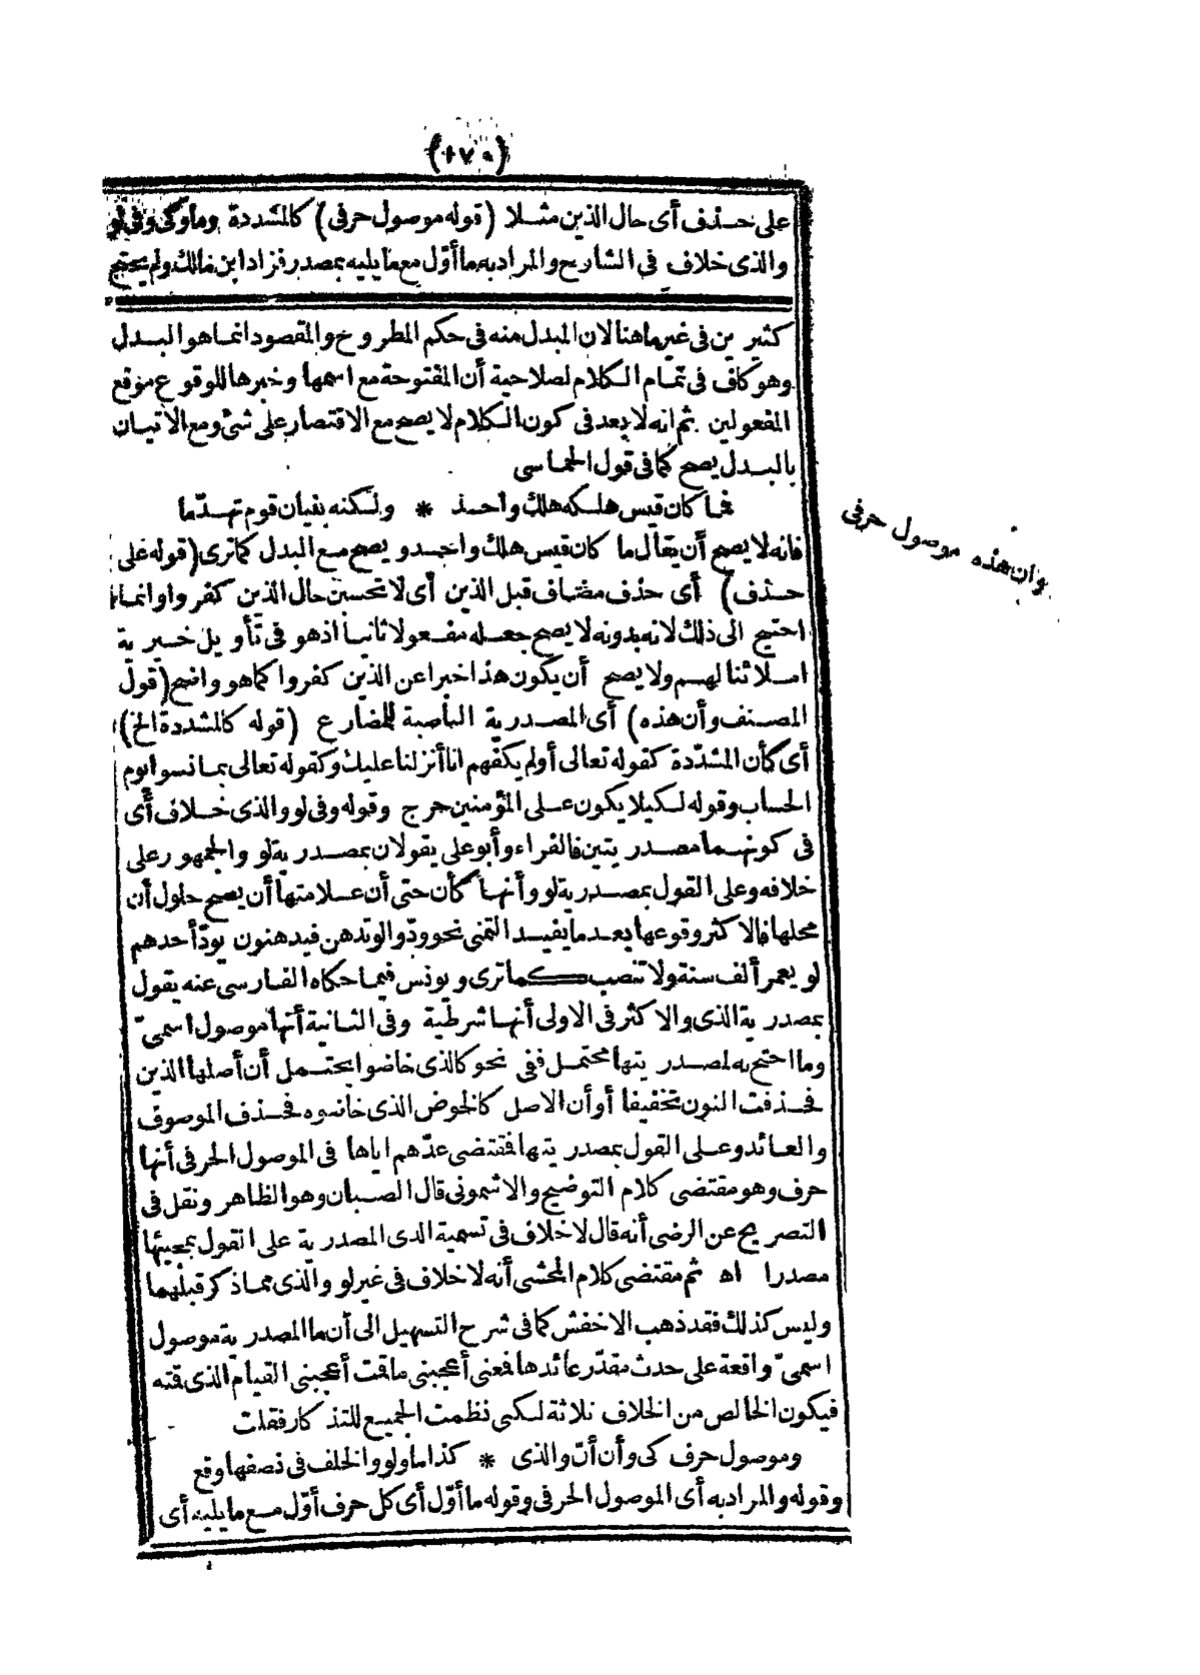 على حذف أى حال الذين مثلا (قوله موصول حرفى) كالمشددة وما وكى وفى لو
والذى خلاف فى الشارح والمراد به ما أوّل مع ما يليه بمصدر فزاد ابن مالك ولم يحتج
كثير ين فى غير ما هنا لان المبدل منه فى حكم المطروح والمقصود انما هو البدل
وهو كاف فى تمام الكلام لصلاحية أن المفتوحة مع اسمها وخبرها للوقوع موقع
المفعولين ثم انه لا بعد فى كون الكلام لا يصح مع الاقتصار على شئ ومع الاتيان
بالبدل يصح كما فى قول الحماسى
فما كان قيس هلكه هلك واحد * ولكنه بنيان قوم تهدّما
فانه لا يصح أن يقال ما كان قيس هلك واحد ويصح مع البدل كما ترى (قوله على
حذف) أى حذف مضاف قبل الذين أى لا تحسبن حال الذين كفروا وانما
احتيج الى ذلك لانه بدونه لا يصح جعله مفعولا ثانيا اذ هو فى تأويل خيرية
املائنا لهم ولا يصح أن يكون هذا خبرا عن الذين كفروا كما هو واضح (قول
المصنف وأن هذه) أى المصدرية الناصبة للمضارع (قوله كالمشددة الخ)
أى كأن المشدّدة كقوله تعالى أو لم يكفهم انا أنزلنا عليك وكقوله تعالى بما نسوا يوم
الحساب وقوله لكيلا يكون على المؤمنين حرج وقوله وفى لو والذى خلاف أى
فى كونهما مصدريتين فالفراء وأبو على يقولان بمصدرية لو والجمهور على
خلافه وعلى القول بمصدرية لو وأنها كأن حتى أن علامتها أن يصح حلول أن
محلها فالاكثر وقوعها بعد ما يفيد التمنى نحو ودّوا لو تدهن فيدهنون يودّ أحدهم
لو يعمر ألف سنة ولا تنصب كما ترى ويونس فيما حكاه الفارسى عنه يقول
بمصدرية الذى والاكثر فى الاولى أنها شرطية وفى الثانية أنها موصول اسمىّ
وما احتج به لمصدريتها محتمل ففى نحو كالذى خاضوا يحتمل أن أصلها الذين
فحذفت النون تخفيفا أو أن الاصل كالخوض الذى خاضوه فحذف الموصوف
والعائد وعلى القول بمصدريتها فقتضى عدّهم اياها فى الموصول الحرفى أنها
حرف وهو مقتضى كلام التوضيح والاشمونى قال الصبان وهو الظاهر ونقل فى
التصريح عن الرضى أنه قال لا خلاف فى تسمية الذى المصدرية على القول بمجيئها
مصدرا اه ثم مقتضى كلام المحشى أنه لا خلاف فى غير لو والذى مما ذكر قبلهما
وليس كذلك فقد ذهب الاخفش كما فى شرح التسهيل الى أن ما المصدرية موصول
اسمىّ واقعة على حدث مقدّر عائدها فمعنى أعجبنى ما قمت أعجبنى القيام الذى قته
فيكون الخالص من الخلاف ثلاثة لكى نظمت الجميع للتذكار فقلت
وموصول حرف كى وأن أنّ والذى * كذا ما ولو والخلف فى نصفها وقع
وقوله والمراد به أى الموصول الحرفى وقوله ما أوّل أى كل حرف أوّل مع ما يليه أى
وان هذه موصول حرفى